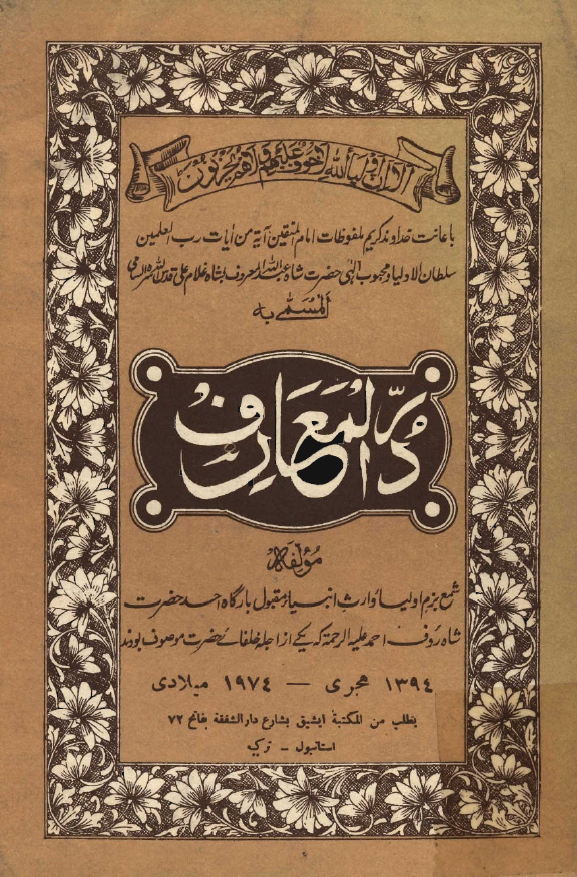 الا ان اولیاء الله لاخوف علیهم ولاهم یحزنون
با عانت خداوند کریم ملفوظات امام المتقین آیة من اٰیات رب العلمین
سلطان الاولیاء محبوب الٰہی حضرت شاه عبد الله المعروف بشاه غلام علی قدس الله سره السامی
المسمّٰی به
درّ المعارف
مؤلفه
شمع بزم اولیاء وارث انبیاء مقبول بارگاه احمد حضرت
شاه رؤف احمد علیه الرحمة که یکے از اجله خلفائے حضرت موصوف بودند
١٣٩٤ هجری — ١٩٧٤ میلادی
يطلب من المكتبة ايشيق بشارع دارالشفقة بفاتح ٧٢
استانبول - تركيه